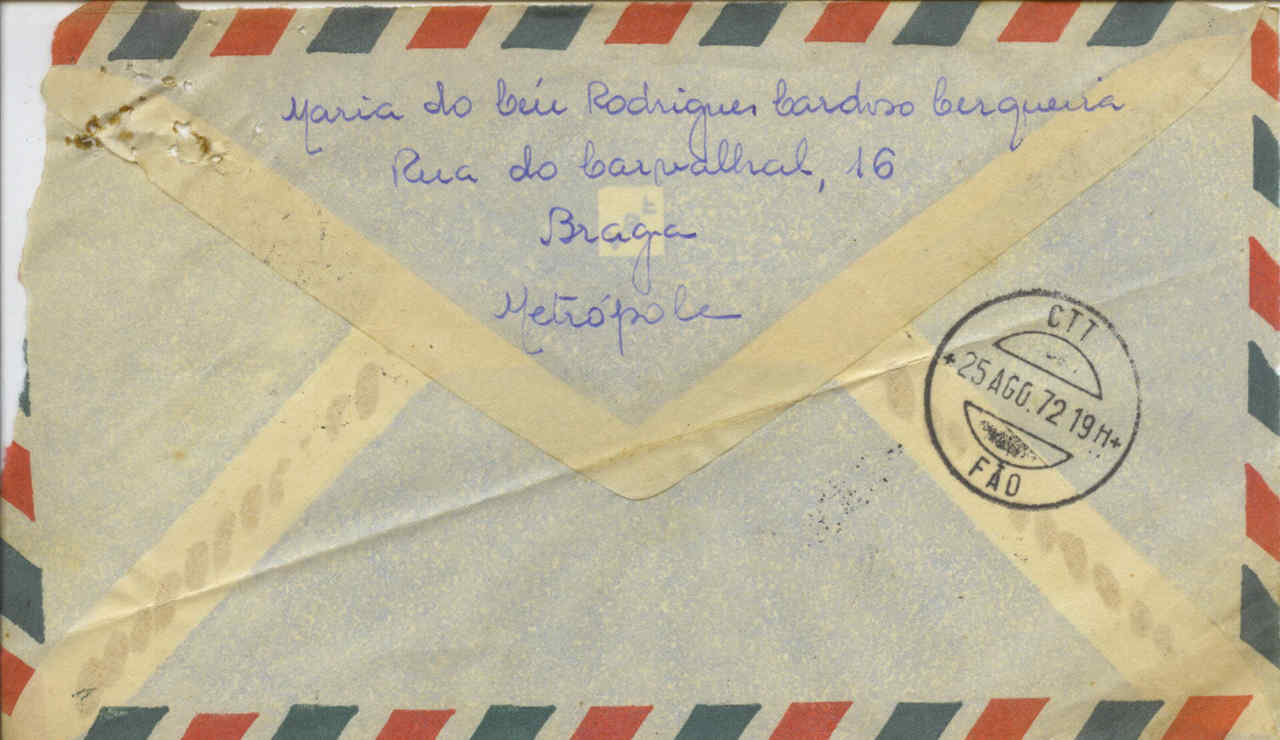 Maria do Céu Rodrigues Cardoso Cerqueira
Rua do Carvalhal, 16
Braga
Metrópole
CTT
+25 AGO. 72 19H+
FÃO